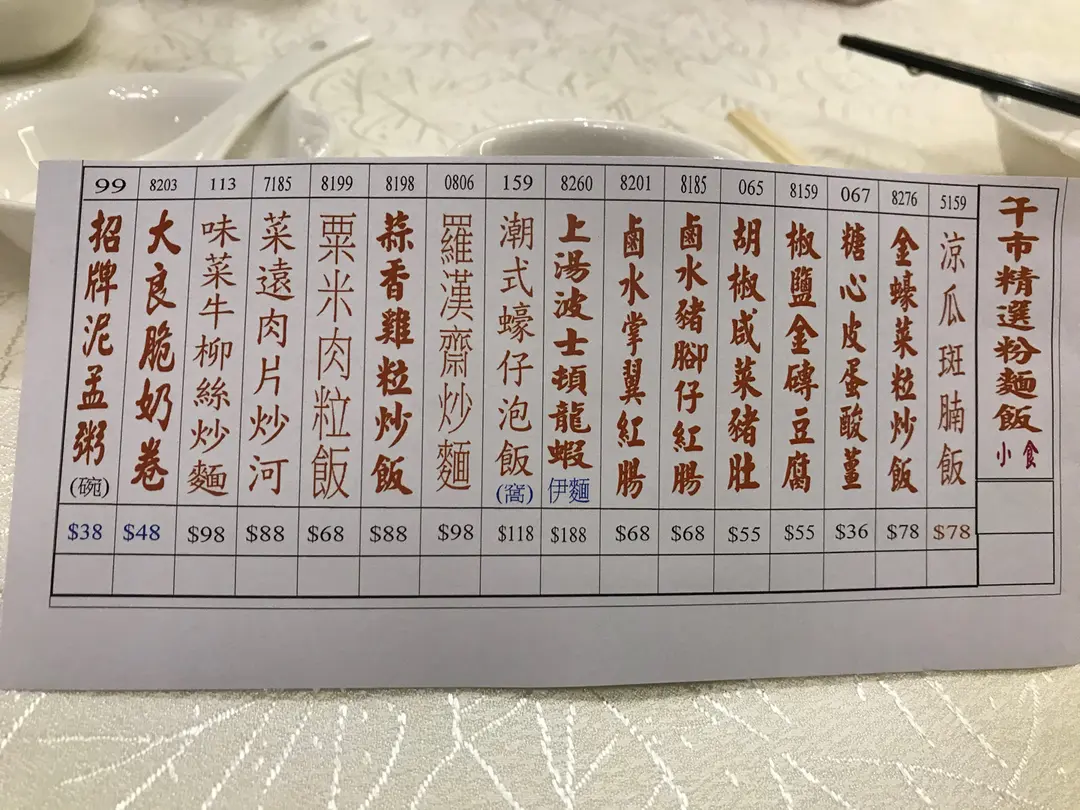 午市精選粉麵飯
小食
5159
涼瓜斑腩飯
$78
8276
金蠔菜粒炒飯
$78
067
糖心皮蛋酸薑
$36
8159
椒鹽金磚豆腐
$55
065
胡椒咸菜豬肚
$55
8185
鹵水豬腳仔紅腸
$68
8201
鹵水掌翼紅腸
$68
8260
上湯波士頓龍蝦
伊麵
$188
159
潮式蠔仔泡飯
(窩)
$118
0806
羅漢齋炒麵
$98
8198
蒜香雞粒炒飯
$88
8199
粟米肉粒飯
$68
7185
菜遠肉片炒河
$88
113
味菜牛柳絲炒麵
$98
8203
大良脆奶卷
$48
99
招牌泥孟粥
(碗)
$38